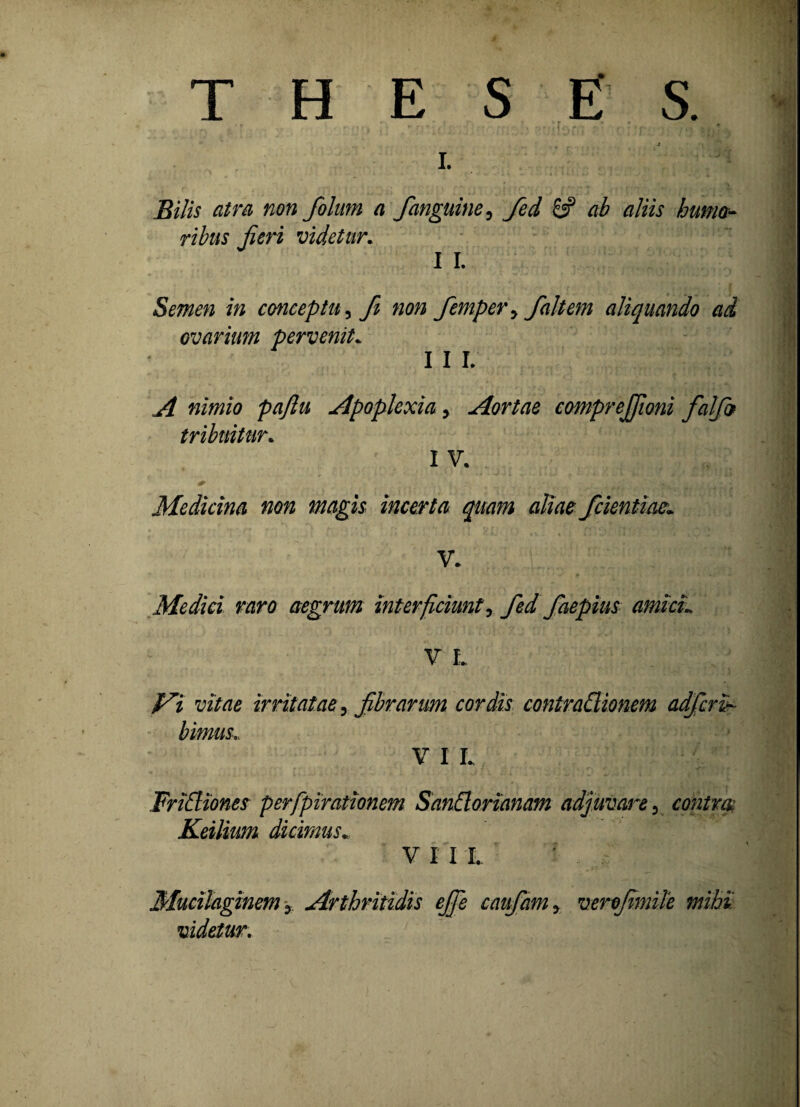 THESES.
I.
Bilis atra non ſolum a ſanguine, ſed & ab aliis humo-
ribus fieri videtur.
II.
Semen in conceptu, ſi non ſemper, ſaltem aliquando ad
ovarium pervenit.
III.
A nimio paſtu Apoplexia, Aortae compreſſioni falſo
tribuitur.
IV.
Medicina non magis incerta quam aliae ſcientiae.
V.
Medici raro aegrum interficiunt, ſed ſaepius amici.
VI.
Vi vitae irritatae, fibrarum cordis contractionem adſcri-
bimus.
VII.
Frictiones perſpirationem Sanctorianam adjuvare, contra
Keilium dicimus.
VIII.
Mucilaginem, Arthritidis eſſe cauſam, veroſimile mihi
videtur.